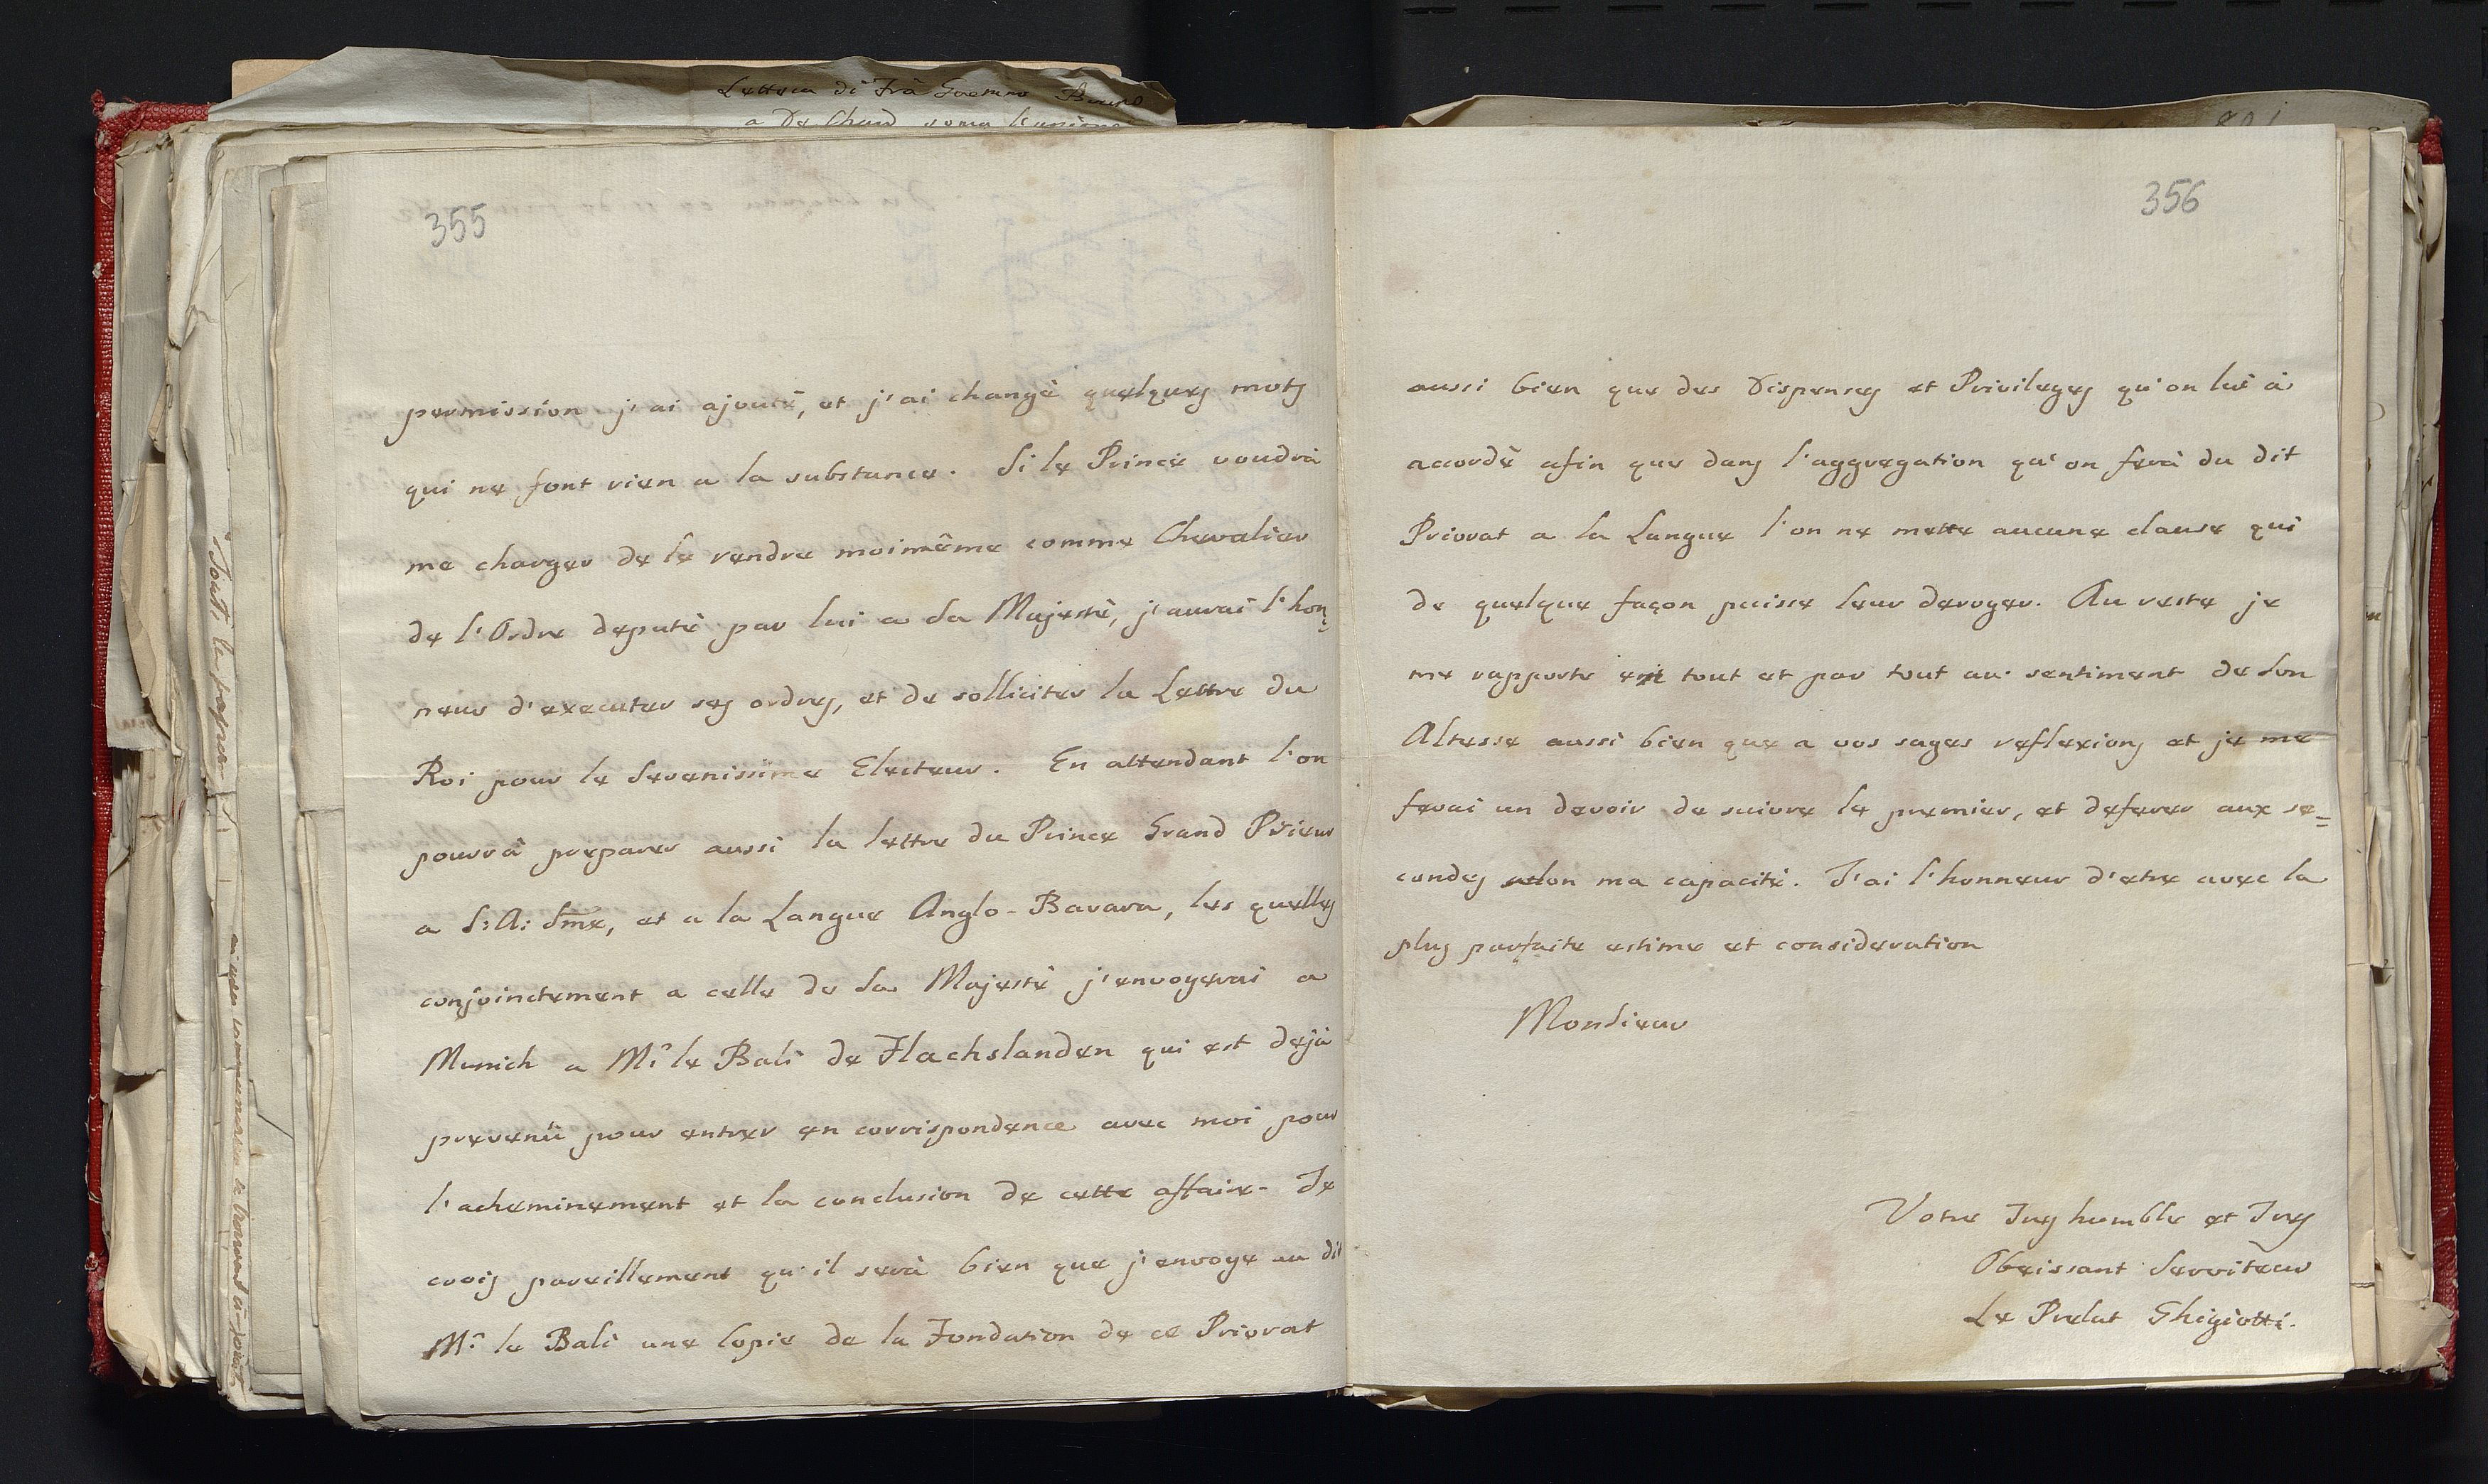 Lettera di Frà Gaetano Bruno
355
permission j'ai ajouté, et j'ai changé quelques mots
qui ne font rien a la substance. Si le Prince voudrà
me charger de le rendre moimême comme Chevalier
de l'Ordre deputé par lui a Sa Majesté, j'aurai l'hon=
neur d'executer ses ordres, et de solliciter la Lettre du
Roi pour le Serenissime Electeur. En attendant l'on
pourrà preparer aussi la lettre du Prince Grand Prieur
a S: A: Sme, et a la Langue Anglo-Bavara, les quelles
conjoinctement a celle de Sa Majesté j'envoyerai a
Munich a Mr le Bali de Flachslanden qui est dejà
prevenü pour entrer en corrispondence avec moi pour
l'acheminement et la conclusion de cette affaire- Je
crois pareillement qu'il serà bien que j'envoye au dit
Mr le Bali une Copie de la Fondation de ce Priorat
356
aussi bien que des Dispenses et Privileges qu'on lui à
accordé afin que dans l'aggregation qu'on ferà du dit
Priorat a la Langue l'on ne mette aucune clause qui
de quelque façon puisse leur deroger. Au reste je
me rapporte en tout et par tout au sentiment de Son
Altesse aussi bien que a vos sages reflexions et je me
ferai un devoir de suivre le premier, et deferer aux se=
condes selon ma capacité. J'ai l'honneur d'etre avec la
plus parfaite estime et consideration
Monsieur
Votre Tres humble et Tres
Obeissant Serviteur
Le Prelat Ghigiotti.